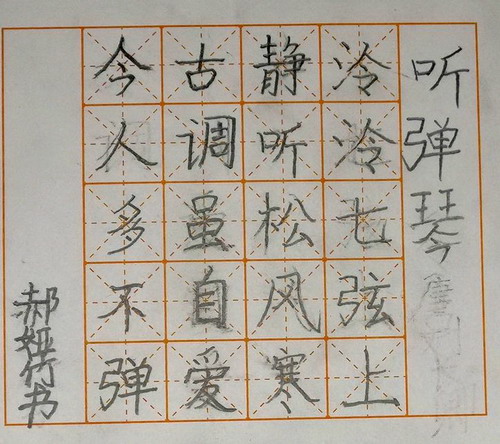 听弹琴
泠泠七弦上
静听松风寒
古调虽自爱
今人多不弹
郝娅竹书